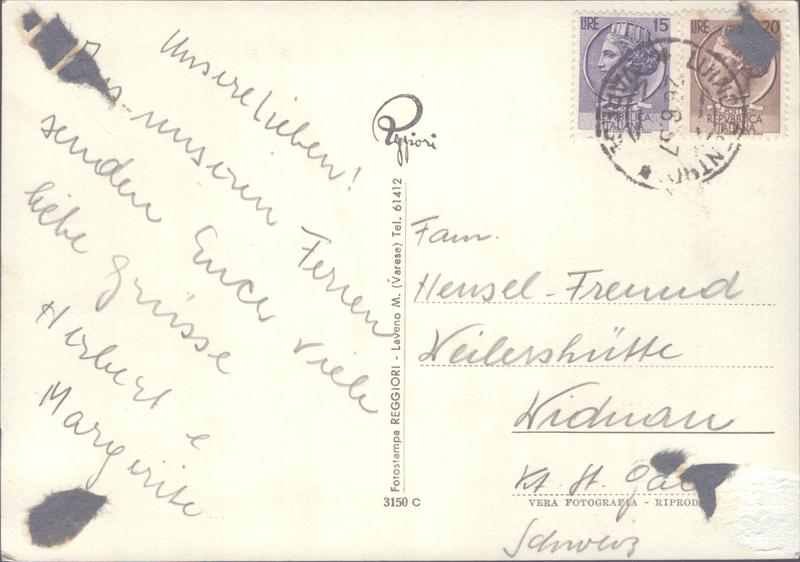 Unsere lieben!
Aus unseren Ferien
senden Euch viele
liebe Grüsse
Herbert e
Margerite
Reggiori
Fotostampa REGGIORI - Laveno M. (Varese) Tel. 61412
3150 C
LIRE 15
REPUBBLICA ITALIANA
LIRE 20
REPVBBLICA ITALIANA
Fam.
Hensel-Freund
Weilershütte
Widnau
Kt. St. Gal
VERA FOTOGRAFIA - RIPROD
Schweiz